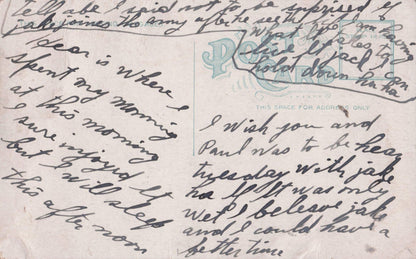 To Mable I said not to be surprised if
jake joines the army after he sees
What
give it
hold down ha ha
dear is where I
spent my morning
at this morning
I sure injoyed it
but I will sleep
this after noon
POST
CARD
THIS SPACE FOR ADDRESS ONLY
I wish you and
Paul was to be hear
tuesday with jake
ha If It was only
wet I beleave jake
and I could have a
better time